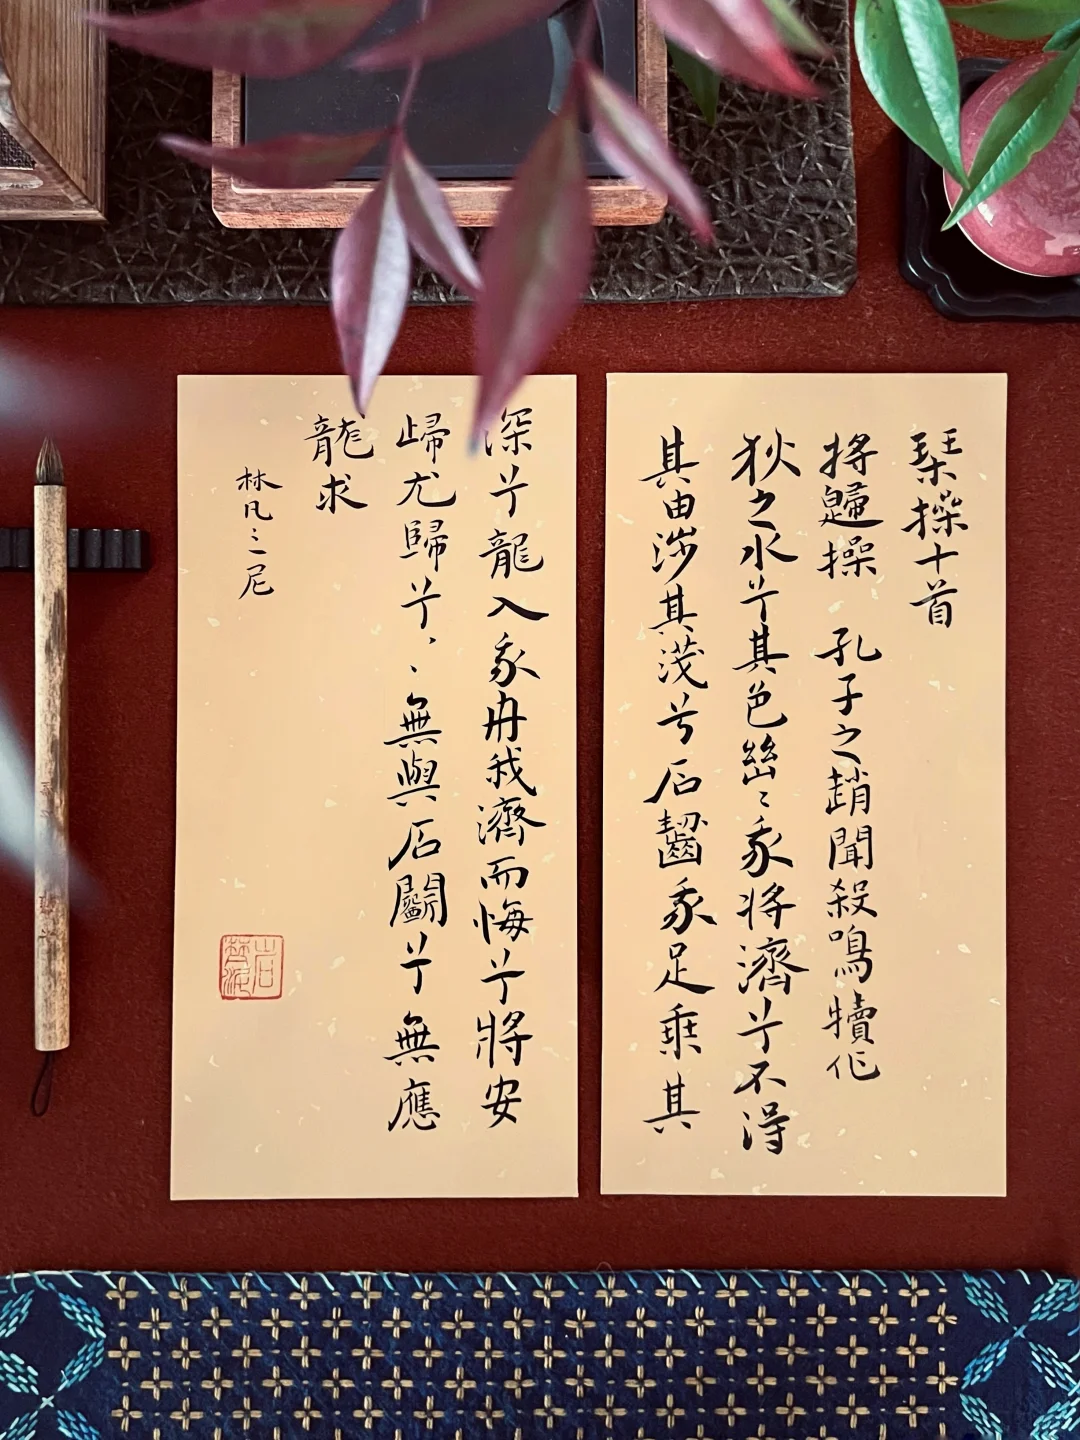 琹操十首
将歸操 孔子之趙聞殺鳴犢作
狄之水兮其色幽〻我将濟兮不得
其由涉其浅兮石齧我足乗其
深兮龍入我舟我濟而悔兮將安
歸尤歸兮〻〻無與石鬭兮無應
龍求
林凡